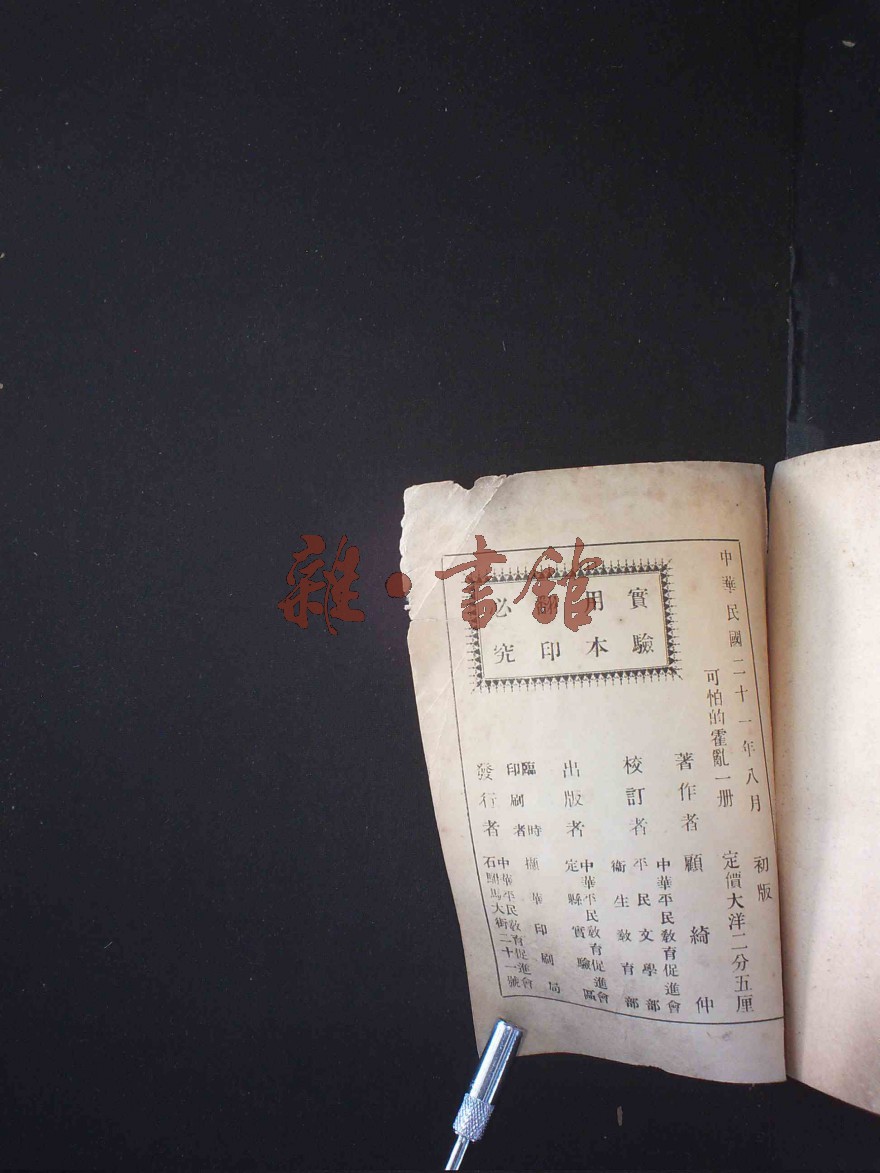 中華民國二十一年八月 初版
可怕的霍亂一册 定價大洋二分五厘
著作者 顧綺仲
校訂者 中華平民敎育促進會
平民文學部
衞生敎育部
出版者 中華平民敎育促進會
定縣實驗區
臨時
印刷者 擷華印刷局
發行者 中華平民敎育促進會
石駙馬大街二十一號
實驗
用本
印
必究
雜·書館